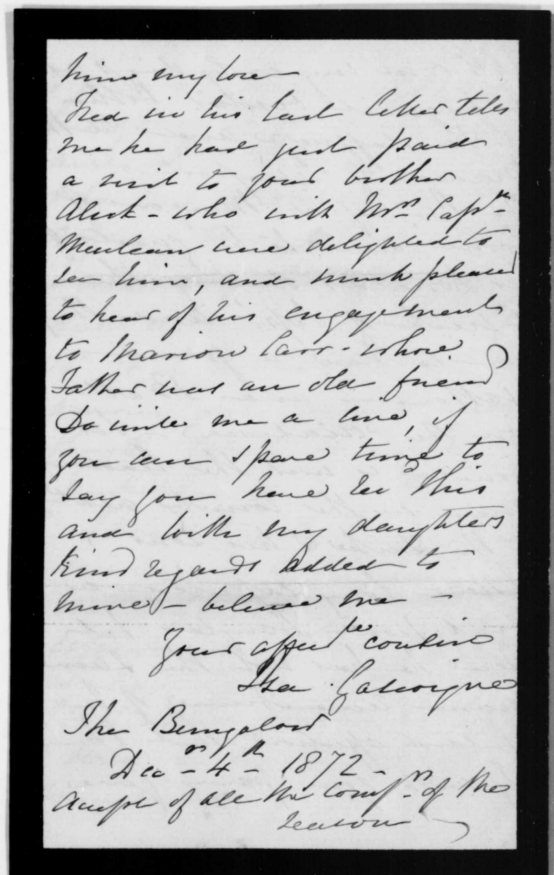 him my love
Fred in his last letter tells
me he had just paid
a visit to your brother
Alick - who with Mrs Captn
Maclean were delighted to
see him, and much pleased
to hear of his engagement
to Marion Carr - whose
Father was an old friend
Do write me a line, if
you can spare time to
say you have recd this
and with my daughters
kind regards added to
mine - believe me -
Your affecte cousin
Isa. Gascoigne
The Bungalow
Decr - 4th - 1872 -
Accept of all the Compts of the
season